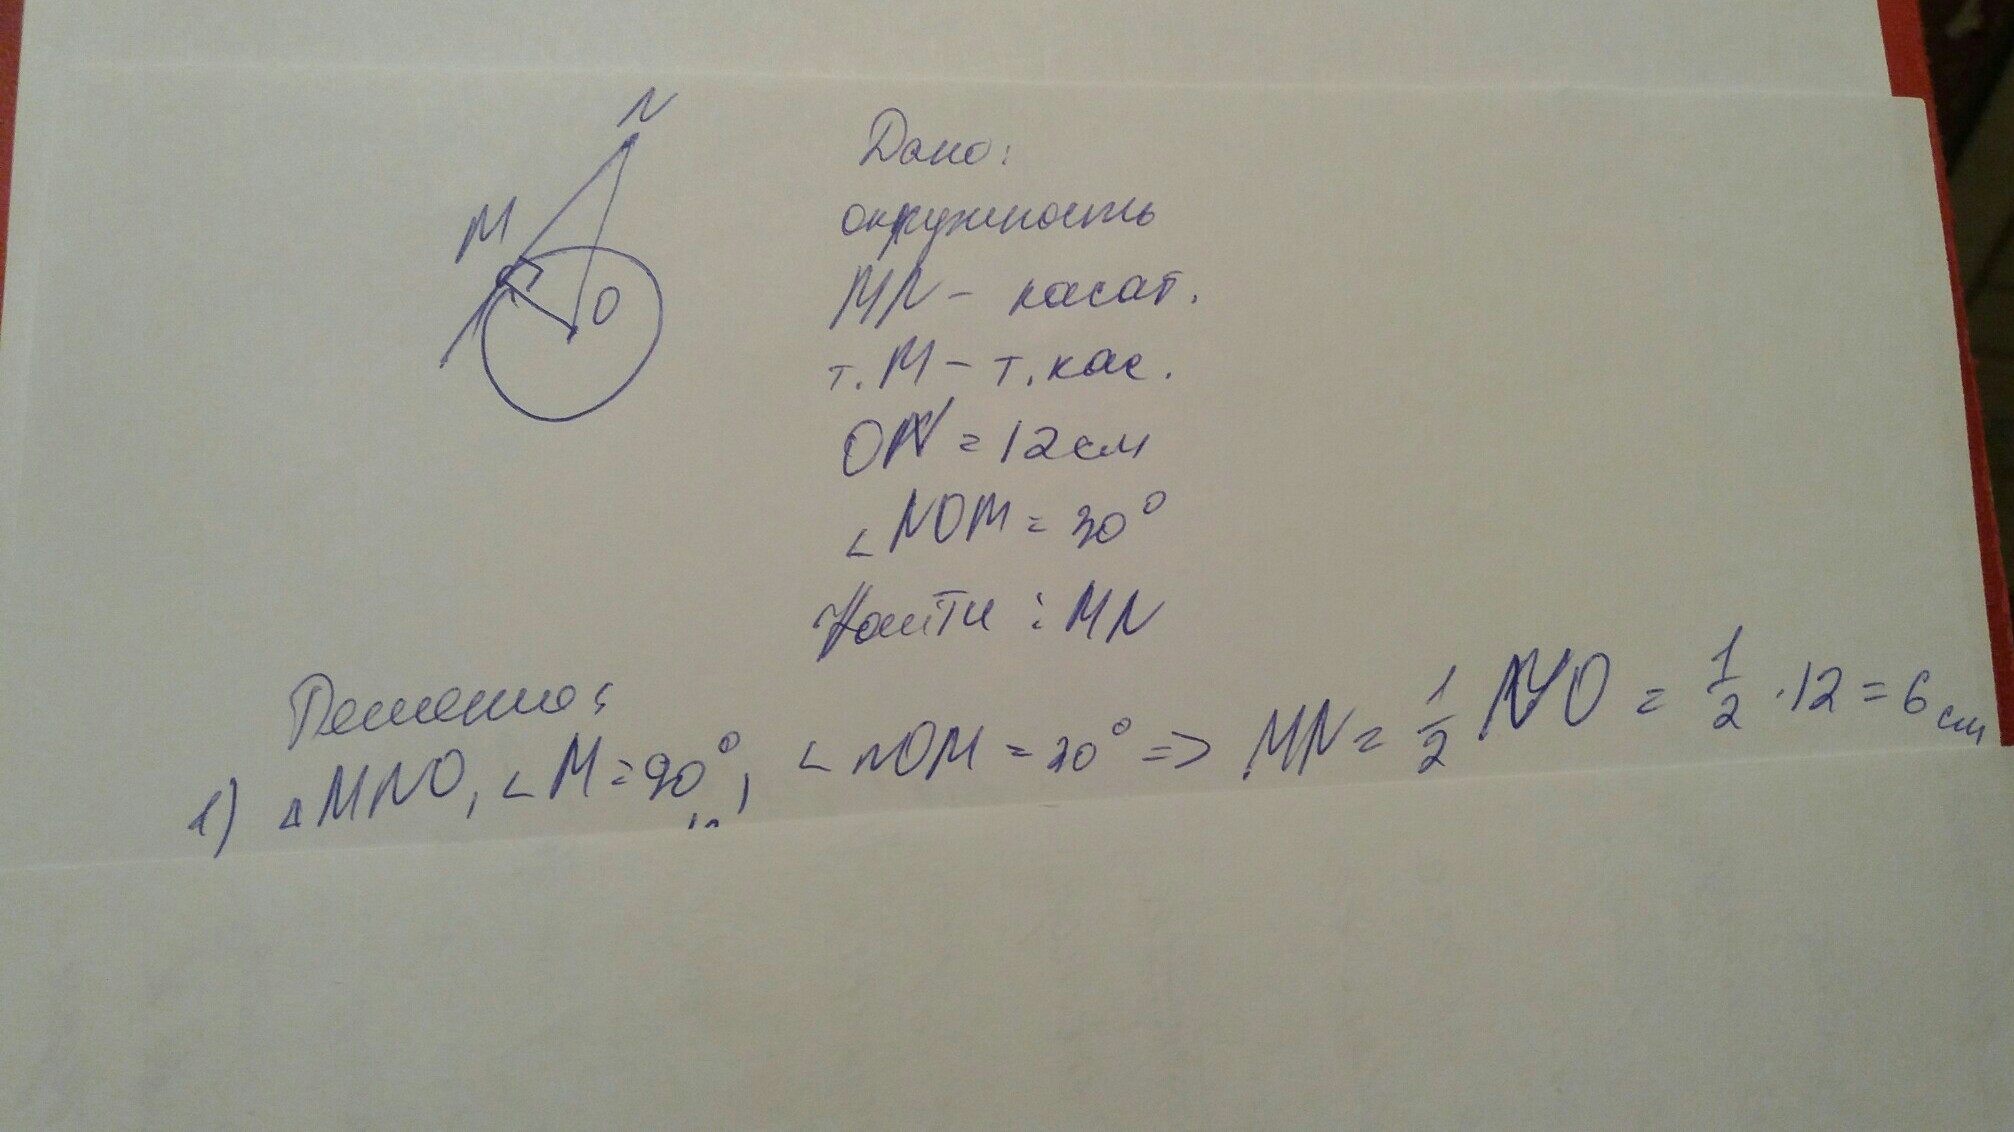 N
M
O
Дано:
окружность
MN - касат.
т. M - т. кас.
ON = 12 см
∠ NOM = 30°
Найти : MN
Решение:
1) △ MNO, ∠ M = 90°, ∠ NOM = 30° => MN = 1/2 NO = 1/2 · 12 = 6 см